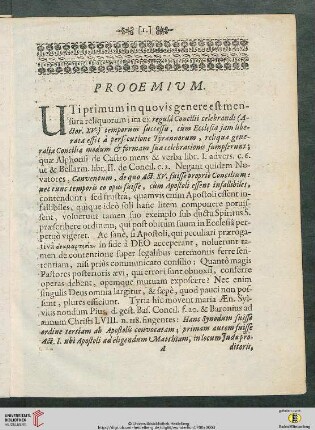 [1.]
PROOEMIUM.
UTi primum in quovis genere est men-
sura reliquorum; ita ex regula Concilii celebrandi (A-
ctor. XV.) temporum successu, cùm Ecclesia jam libe-
rata esset à persecutione Tyrannorum, reliqua gene-
ralia Concilia modum & formam suæ celebrationis sumpserunt;
quæ Alphonsi de Castro mens & verba libr. I. advers. c. 6.
ut & Bellarm. libr. II. de Concil. c. 2. Negant quidem No-
vatores, Conventum, de quo Act. XV. fuisse propriè Concilium:
nec tunc temporis eo opus fuisse, cùm Apostoli essent infallibiles,
contendunt; sed frustra, quamvis enim Apostoli essent in-
fallibiles, quique ideò soli hanc litem componere potuis-
sent, voluerunt tamen suo exemplo sub ductu Spiritus S.
præscribere ordinem, qui post obitum suum in Ecclesia per-
petuò vigeret. Ac sanè, si Apostoli, qui peculiari præroga-
tivâ à DEO acceperant, noluerunt ta-
men de contentione super legalibus ceremoniis ferre sen-
tentiam, nisi priùs communicato consilio: Quantò magis
Pastores posterioris ævi, qui errori sunt obnoxii, conferre
operas debent, opemque mutuam exposcere? Nec enim
singulis Deus omnia largitur, & sæpè, quod pauci non pos-
sunt, plures efficiunt. Æn. Syl-
vius nondum Pius, d. gest. Bas. Concil. f. 20. & Baronius ad
annum Christi LVIII. n. 118. fingentes: Hanc Synodum fuisse
ordine tertiam ab Apostolis convocatam; primam autem fuisse
Act. I. ubi Apostoli ad eligendum Matthiam, in locum Judæ pro-
A
ditoris,
UNIVERSITÄTS-
BIBLIOTHEK
HEIDELBERG
© Universitätsbibliothek Heidelberg